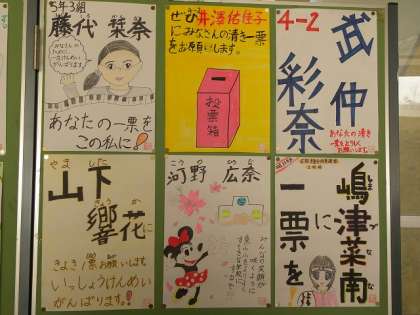 5年3組
藤代 栞奈
みなさんの
ために
がんばります。
あなたの一票を
この私に!
ぜひ井澤佑佳子
にみなさんの清き一票
をお願いします。
投票箱
4-2
武仲
彩奈
あなたの清き
一票をよろしく
お願いします。
やました
山下
響花に
きよき一票お願いします
いっしょうけんめい
がんばります。
こうの ひろな
河野 広奈
嶋津菜南
に
一票を